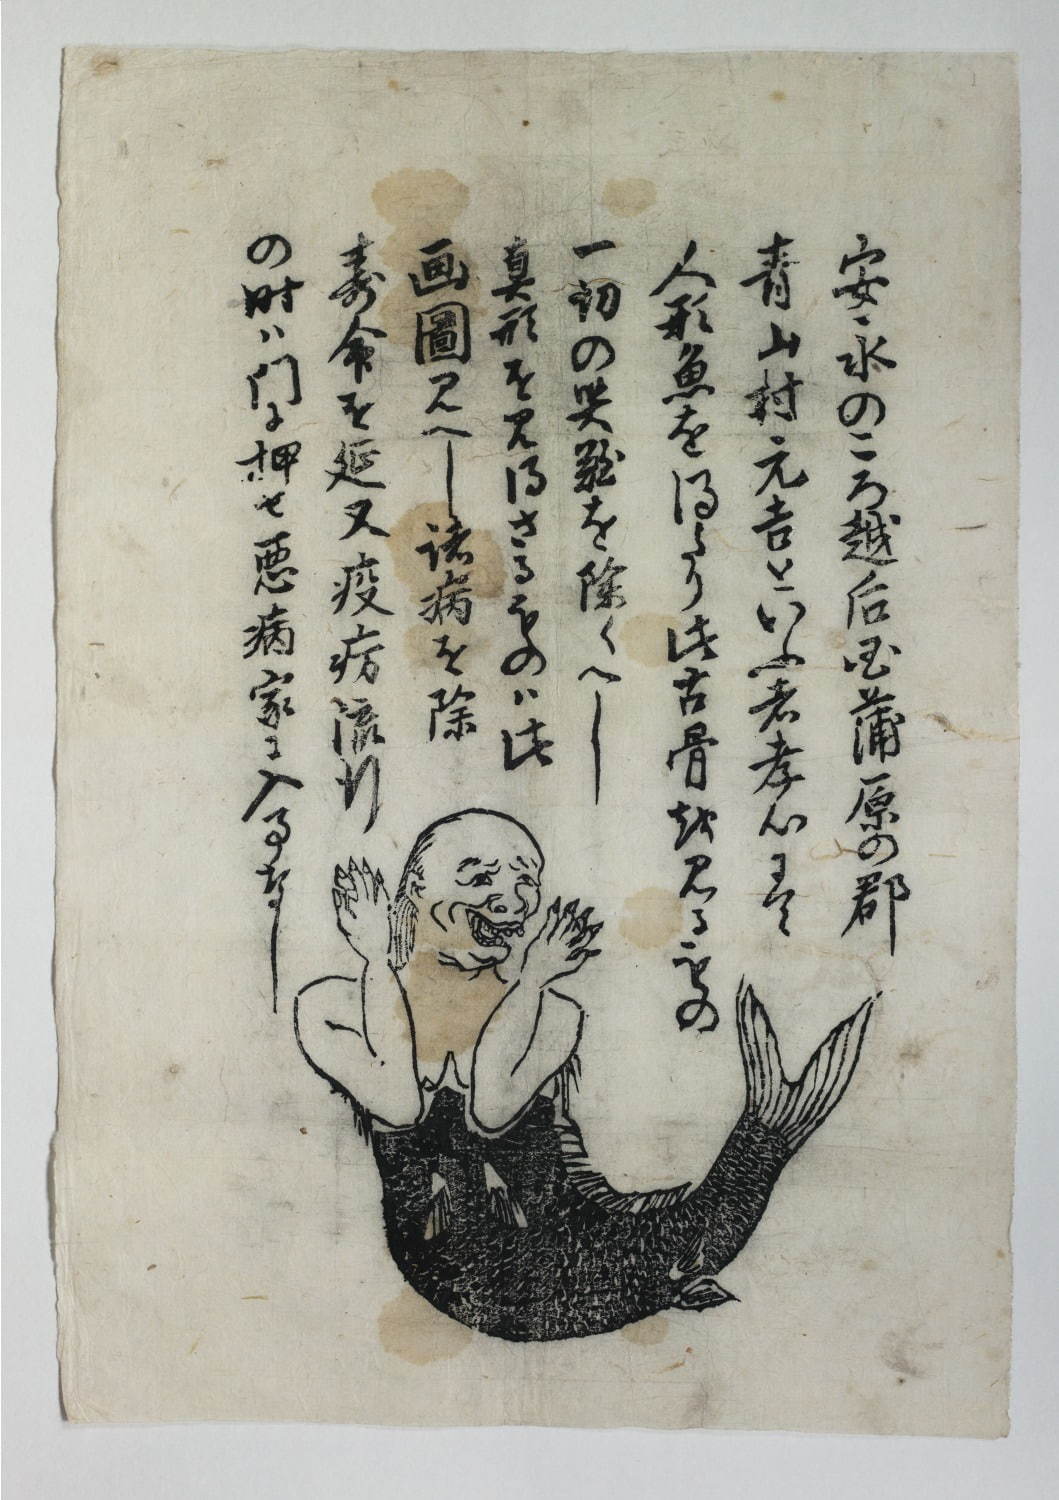 安〻永のころ越后国蒲原の郡
青山村元吉といふ者孝心
人形魚を得たり此古骨を見るものは
一切の災難を除くへし
真形を見得さるものハ此
画圖見へし諸病を除
寿命を延又疫病流行
の時ハ門に押せ悪病家に入る事なし